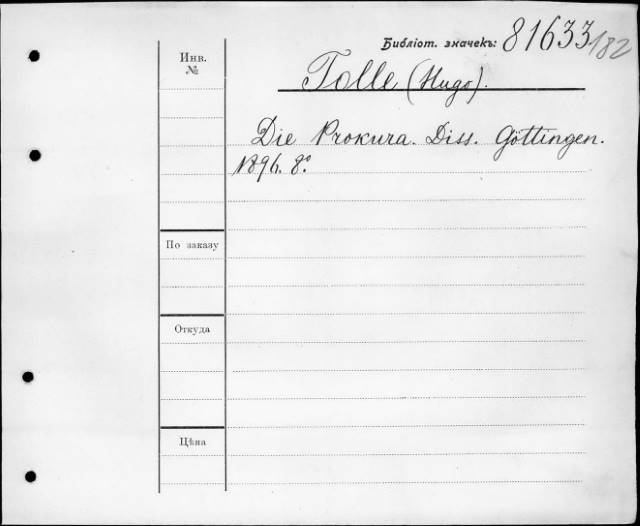 Библіот. значекъ: 81633/182
Инв.
№
Tolle (Hugo).
Die Prokura. Diss. Göttingen.
1896. 8°.
По заказу
Откуда
Цѣна